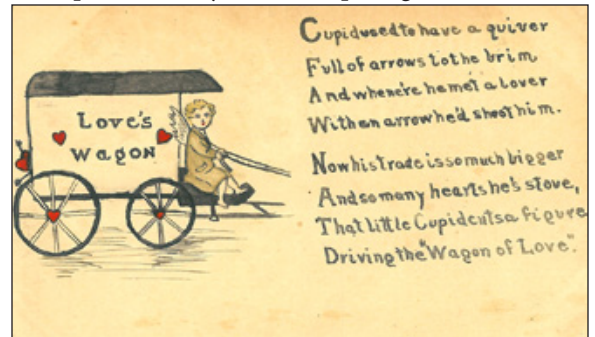 Love's
Wagon
Cupid used to have a quiver
Full of arrows to the brim
And where're he met a lover
With an arrow he'd shoot him.
Now his trade is so much bigger
And so many hearts he's stove,
That little Cupid cuts a figure
Driving the "Wagon of Love".